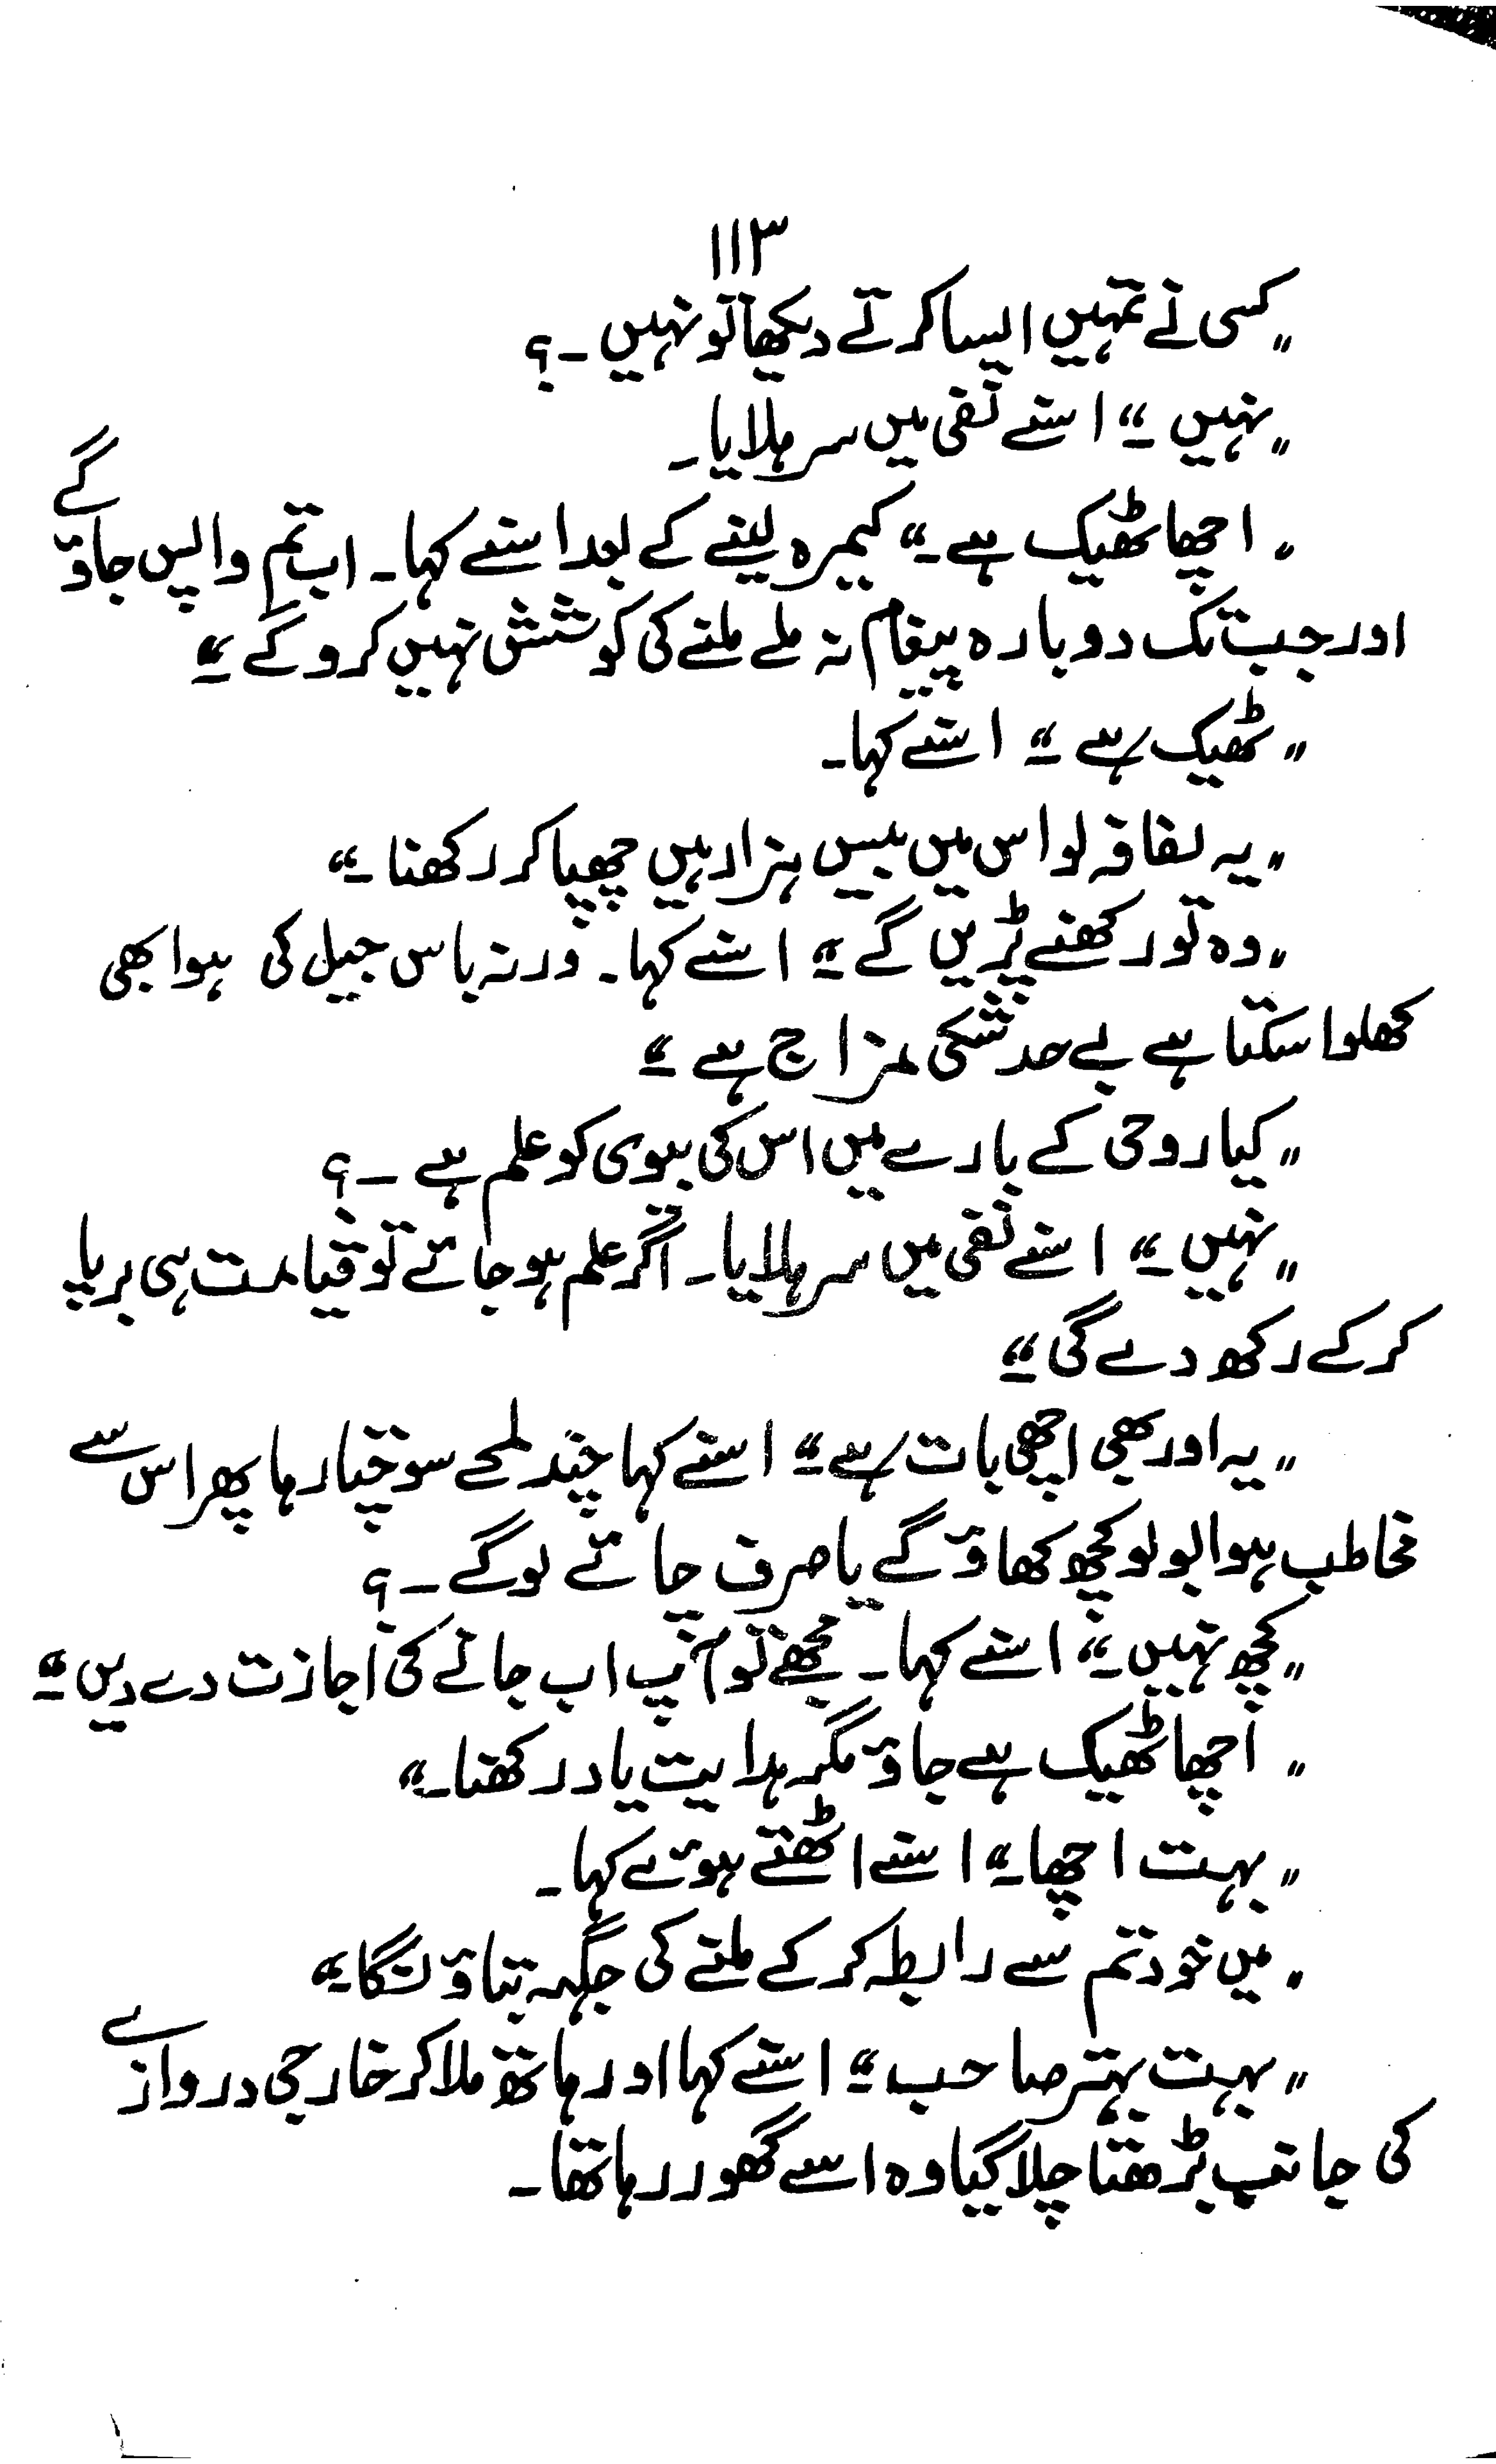 ۱۱۳
"کسی نے تمہیں ایسا کرتے دیکھا تو نہیں ۔؟
"نہیں ۔" اسنے نفی میں سر ہلایا۔
"اچھا ٹھیک ہے ۔" کیمرہ لینے کے بعد اسنے کہا۔ اب تم واپس جاؤ گے
اور جب تک دوبارہ پیغام نہ ملے ملنے کی کوشش نہیں کرو گے ۔"
"ٹھیک ہے ۔" اسنے کہا۔
"یہ لفافہ لو اس میں بیس ہزار ہیں چھپا کر رکھنا ۔"
"وہ تو رکھنے پڑیں گے ۔" اسنے کہا۔ ورنہ باس جیل کی ہوا بھی
کھلوا سکتا ہے بے حد شکی مزاج ہے ۔"
"کیا روحی کے بارے میں اس کی بیوی کو علم ہے ۔؟
"نہیں ۔" اسنے نفی میں سر ہلایا۔ اگر علم ہو جائے تو قیامت ہی برپا
کر کے رکھ دے گی ۔"
"یہ اور بھی اچھی بات ہے ۔" اسنے کہا چند لمحے سوچتا رہا پھر اس سے
مخاطب ہوا بولو کچھ کھاؤ گے یا صرف چائے لو گے ۔؟
"کچھ نہیں ۔" اسنے کہا۔ مجھے تو آپ اب جانے کی اجازت دے دیں ۔"
"اچھا ٹھیک ہے جاؤ مگر ہدایت یاد رکھنا ۔"
"بہت اچھا ۔" اسنے اٹھتے ہوئے کہا۔
"میں خود تم سے رابطہ کر کے ملنے کی جگہ بتاؤنگا ۔"
"بہت بہتر صاحب ۔" اسنے کہا اور ہاتھ ملا کر خارجی دروازے
کی جانب بڑھتا چلا گیا وہ اسے گھور رہا تھا۔